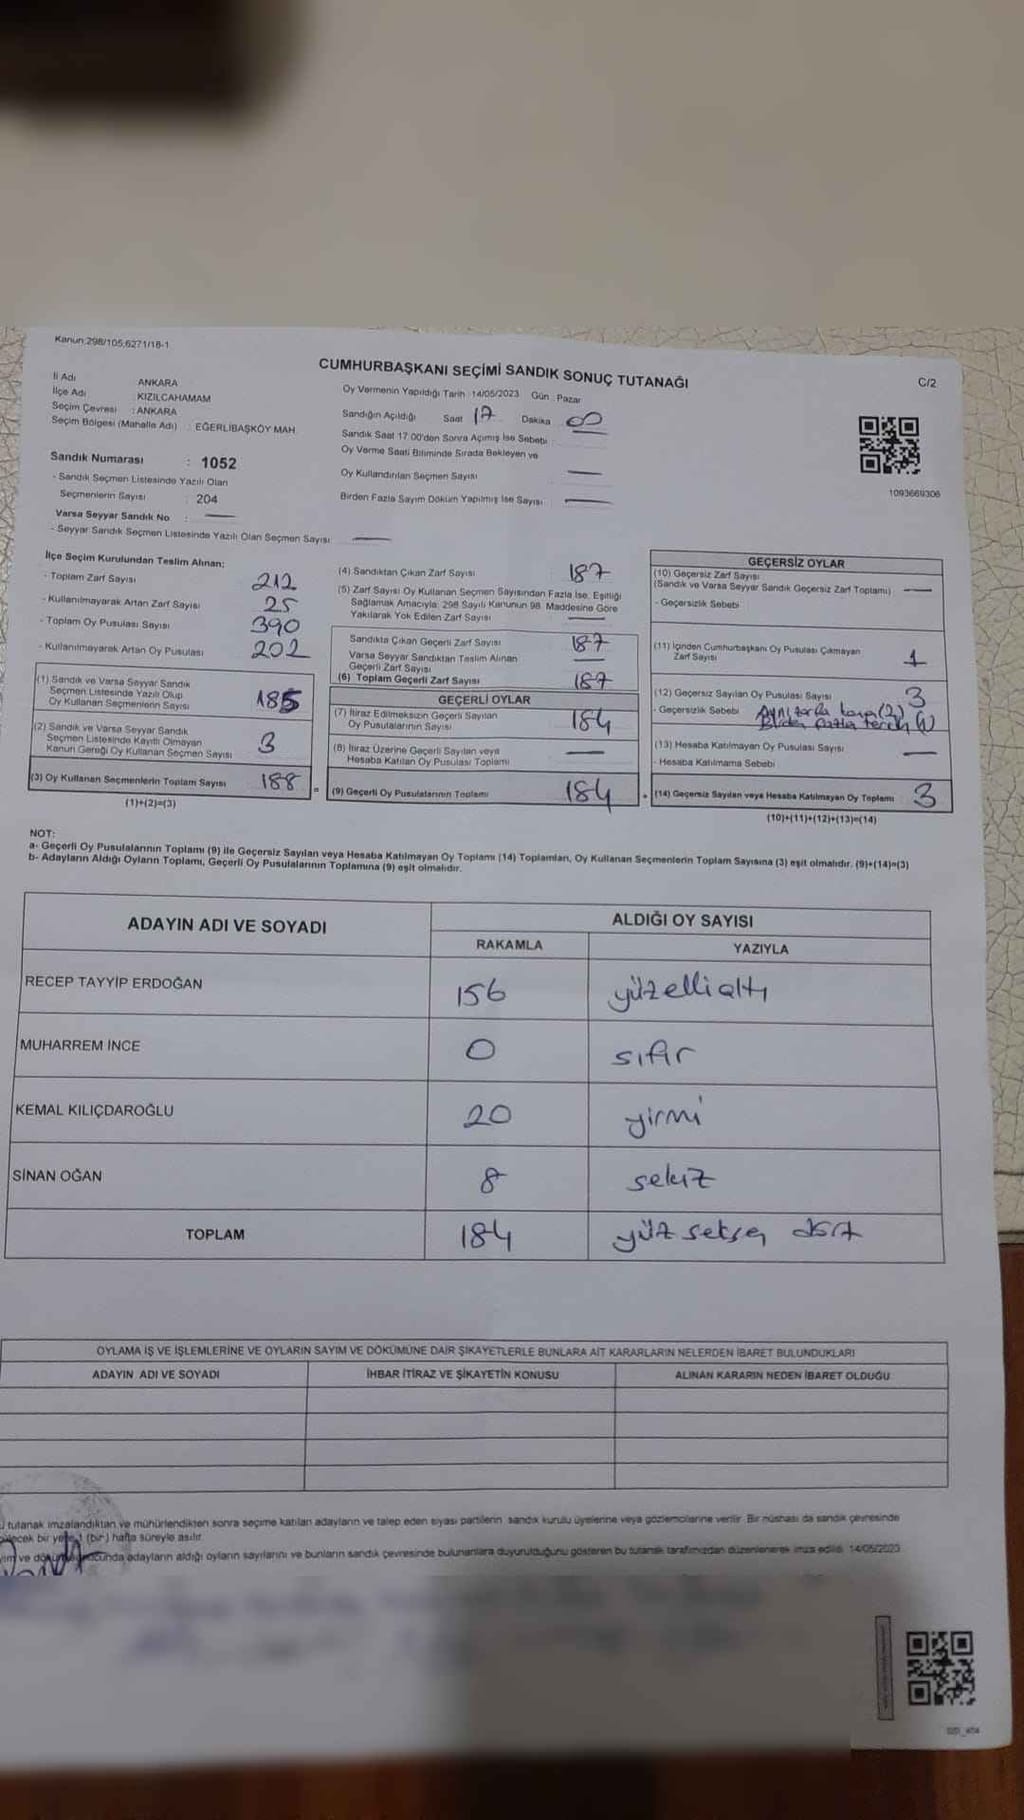 Kanun:298/105;6271/18-1
CUMHURBAŞKANI SEÇİMİ SANDIK SONUÇ TUTANAĞI
C/2
İl Adı ANKARA
İlçe Adı KIZILCAHAMAM
Seçim Çevresi : ANKARA
Seçim Bölgesi (Mahalle Adı) : EĞERLİBAŞKÖY MAH.
Sandık Numarası : 1052
- Sandık Seçmen Listesinde Yazılı Olan
Seçmenlerin Sayısı : 204
Varsa Seyyar Sandık No : —
- Seyyar Sandık Seçmen Listesinde Yazılı Olan Seçmen Sayısı —
Oy Vermenin Yapıldığı Tarih : 14/05/2023 Gün : Pazar
Sandığın Açıldığı Saat 17 Dakika 00
Sandık Saat 17.00'den Sonra Açılmış İse Sebebi
Oy Verme Saati Bitiminde Sırada Bekleyen ve
Oy Kullandırılan Seçmen Sayısı —
Birden Fazla Sayım Döküm Yapılmış İse Sayısı —
1093669306
İlçe Seçim Kurulundan Teslim Alınan:
- Toplam Zarf Sayısı 212
- Kullanılmayarak Artan Zarf Sayısı 25
- Toplam Oy Pusulası Sayısı 390
- Kullanılmayarak Artan Oy Pusulası 202
(1) Sandık ve Varsa Seyyar Sandık
Seçmen Listesinde Yazılı Olup
Oy Kullanan Seçmenlerin Sayısı 185
(2) Sandık ve Varsa Seyyar Sandık
Seçmen Listesinde Kayıtlı Olmayan
Kanun Gereği Oy Kullanan Seçmen Sayısı 3
(3) Oy Kullanan Seçmenlerin Toplam Sayısı 188
(1)+(2)=(3)
(4) Sandıktan Çıkan Zarf Sayısı 187
(5) Zarf Sayısı Oy Kullanan Seçmen Sayısından Fazla İse, Eşitliği
Sağlamak Amacıyla, 298 Sayılı Kanunun 98. Maddesine Göre
Yakılarak Yok Edilen Zarf Sayısı —
Sandıkta Çıkan Geçerli Zarf Sayısı 187
Varsa Seyyar Sandıktan Teslim Alınan
Geçerli Zarf Sayısı —
(6) Toplam Geçerli Zarf Sayısı 187
GEÇERLİ OYLAR
(7) İtiraz Edilmeksizin Geçerli Sayılan
Oy Pusulalarının Sayısı 184
(8) İtiraz Üzerine Geçerli Sayılan veya
Hesaba Katılan Oy Pusulası Toplamı —
= (9) Geçerli Oy Pusulalarının Toplamı 184
GEÇERSİZ OYLAR
(10) Geçersiz Zarf Sayısı
(Sandık ve Varsa Seyyar Sandık Geçersiz Zarf Toplamı) —
- Geçersizlik Sebebi
(11) İçinden Cumhurbaşkanı Oy Pusulası Çıkmayan
Zarf Sayısı 1
(12) Geçersiz Sayılan Oy Pusulası Sayısı 3
- Geçersizlik Sebebi
(13) Hesaba Katılmayan Oy Pusulası Sayısı —
- Hesaba Katılmama Sebebi
+ (14) Geçersiz Sayılan veya Hesaba Katılmayan Oy Toplamı 3
(10)+(11)+(12)+(13)=(14)
NOT:
a- Geçerli Oy Pusulalarının Toplamı (9) ile Geçersiz Sayılan veya Hesaba Katılmayan Oy Toplamı (14) Toplamları, Oy Kullanan Seçmenlerin Toplam Sayısına (3) eşit olmalıdır. (9)+(14)=(3)
b- Adayların Aldığı Oyların Toplamı, Geçerli Oy Pusulalarının Toplamına (9) eşit olmalıdır.
ADAYIN ADI VE SOYADI ALDIĞI OY SAYISI
RAKAMLA YAZIYLA
RECEP TAYYİP ERDOĞAN 156 yüzellialtı
MUHARREM İNCE 0 sıfır
KEMAL KILIÇDAROĞLU 20 yirmi
SİNAN OĞAN 8 sekiz
TOPLAM 184 yüz seksen dört
OYLAMA İŞ VE İŞLEMLERİNE VE OYLARIN SAYIM VE DÖKÜMÜNE DAİR ŞİKAYETLERLE BUNLARA AİT KARARLARIN NELERDEN İBARET BULUNDUKLARI
ADAYIN ADI VE SOYADI İHBAR İTİRAZ VE ŞİKAYETİN KONUSU ALINAN KARARIN NEDEN İBARET OLDUĞU
tutanak imzalandıktan ve mühürlendikten sonra seçime katılan adayların ve talep eden siyasi partilerin sandık kurulu üyelerine veya gözlemcilerine verilir. Bir nüshası da sandık çevresinde
bir yere 1 (bir) hafta süreyle asılır.
ve adayların aldığı oyların sayılarını ve bunların sandık çevresinde bulunanlara duyurulduğunu gösteren bu tutanak tarafımızdan düzenlenerek imza edildi. 14/05/2023